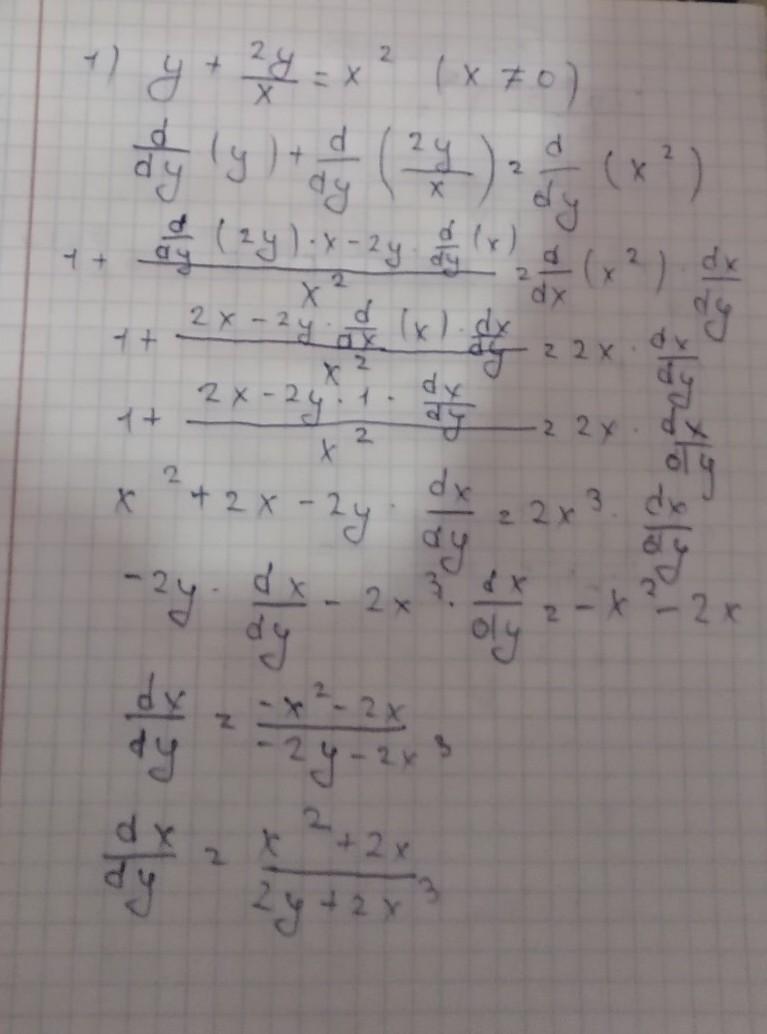 1) y + 2y/x = x² (x ≠ 0)
d/dy (y) + d/dy (2y/x) = d/dy (x²)
1 + (d/dy (2y) · x - 2y · d/dy (x))/x² = d/dx (x²) · dx/dy
1 + (2x - 2y · d/dx (x) · dx/dy)/x² = 2x · dx/dy
1 + (2x - 2y · 1 · dx/dy)/x² = 2x · dx/dy
x² + 2x - 2y · dx/dy = 2x³ · dx/dy
-2y · dx/dy - 2x³ · dx/dy = -x² - 2x
dx/dy = (-x² - 2x)/(-2y - 2x³)
dx/dy = (x² + 2x)/(2y + 2x³)